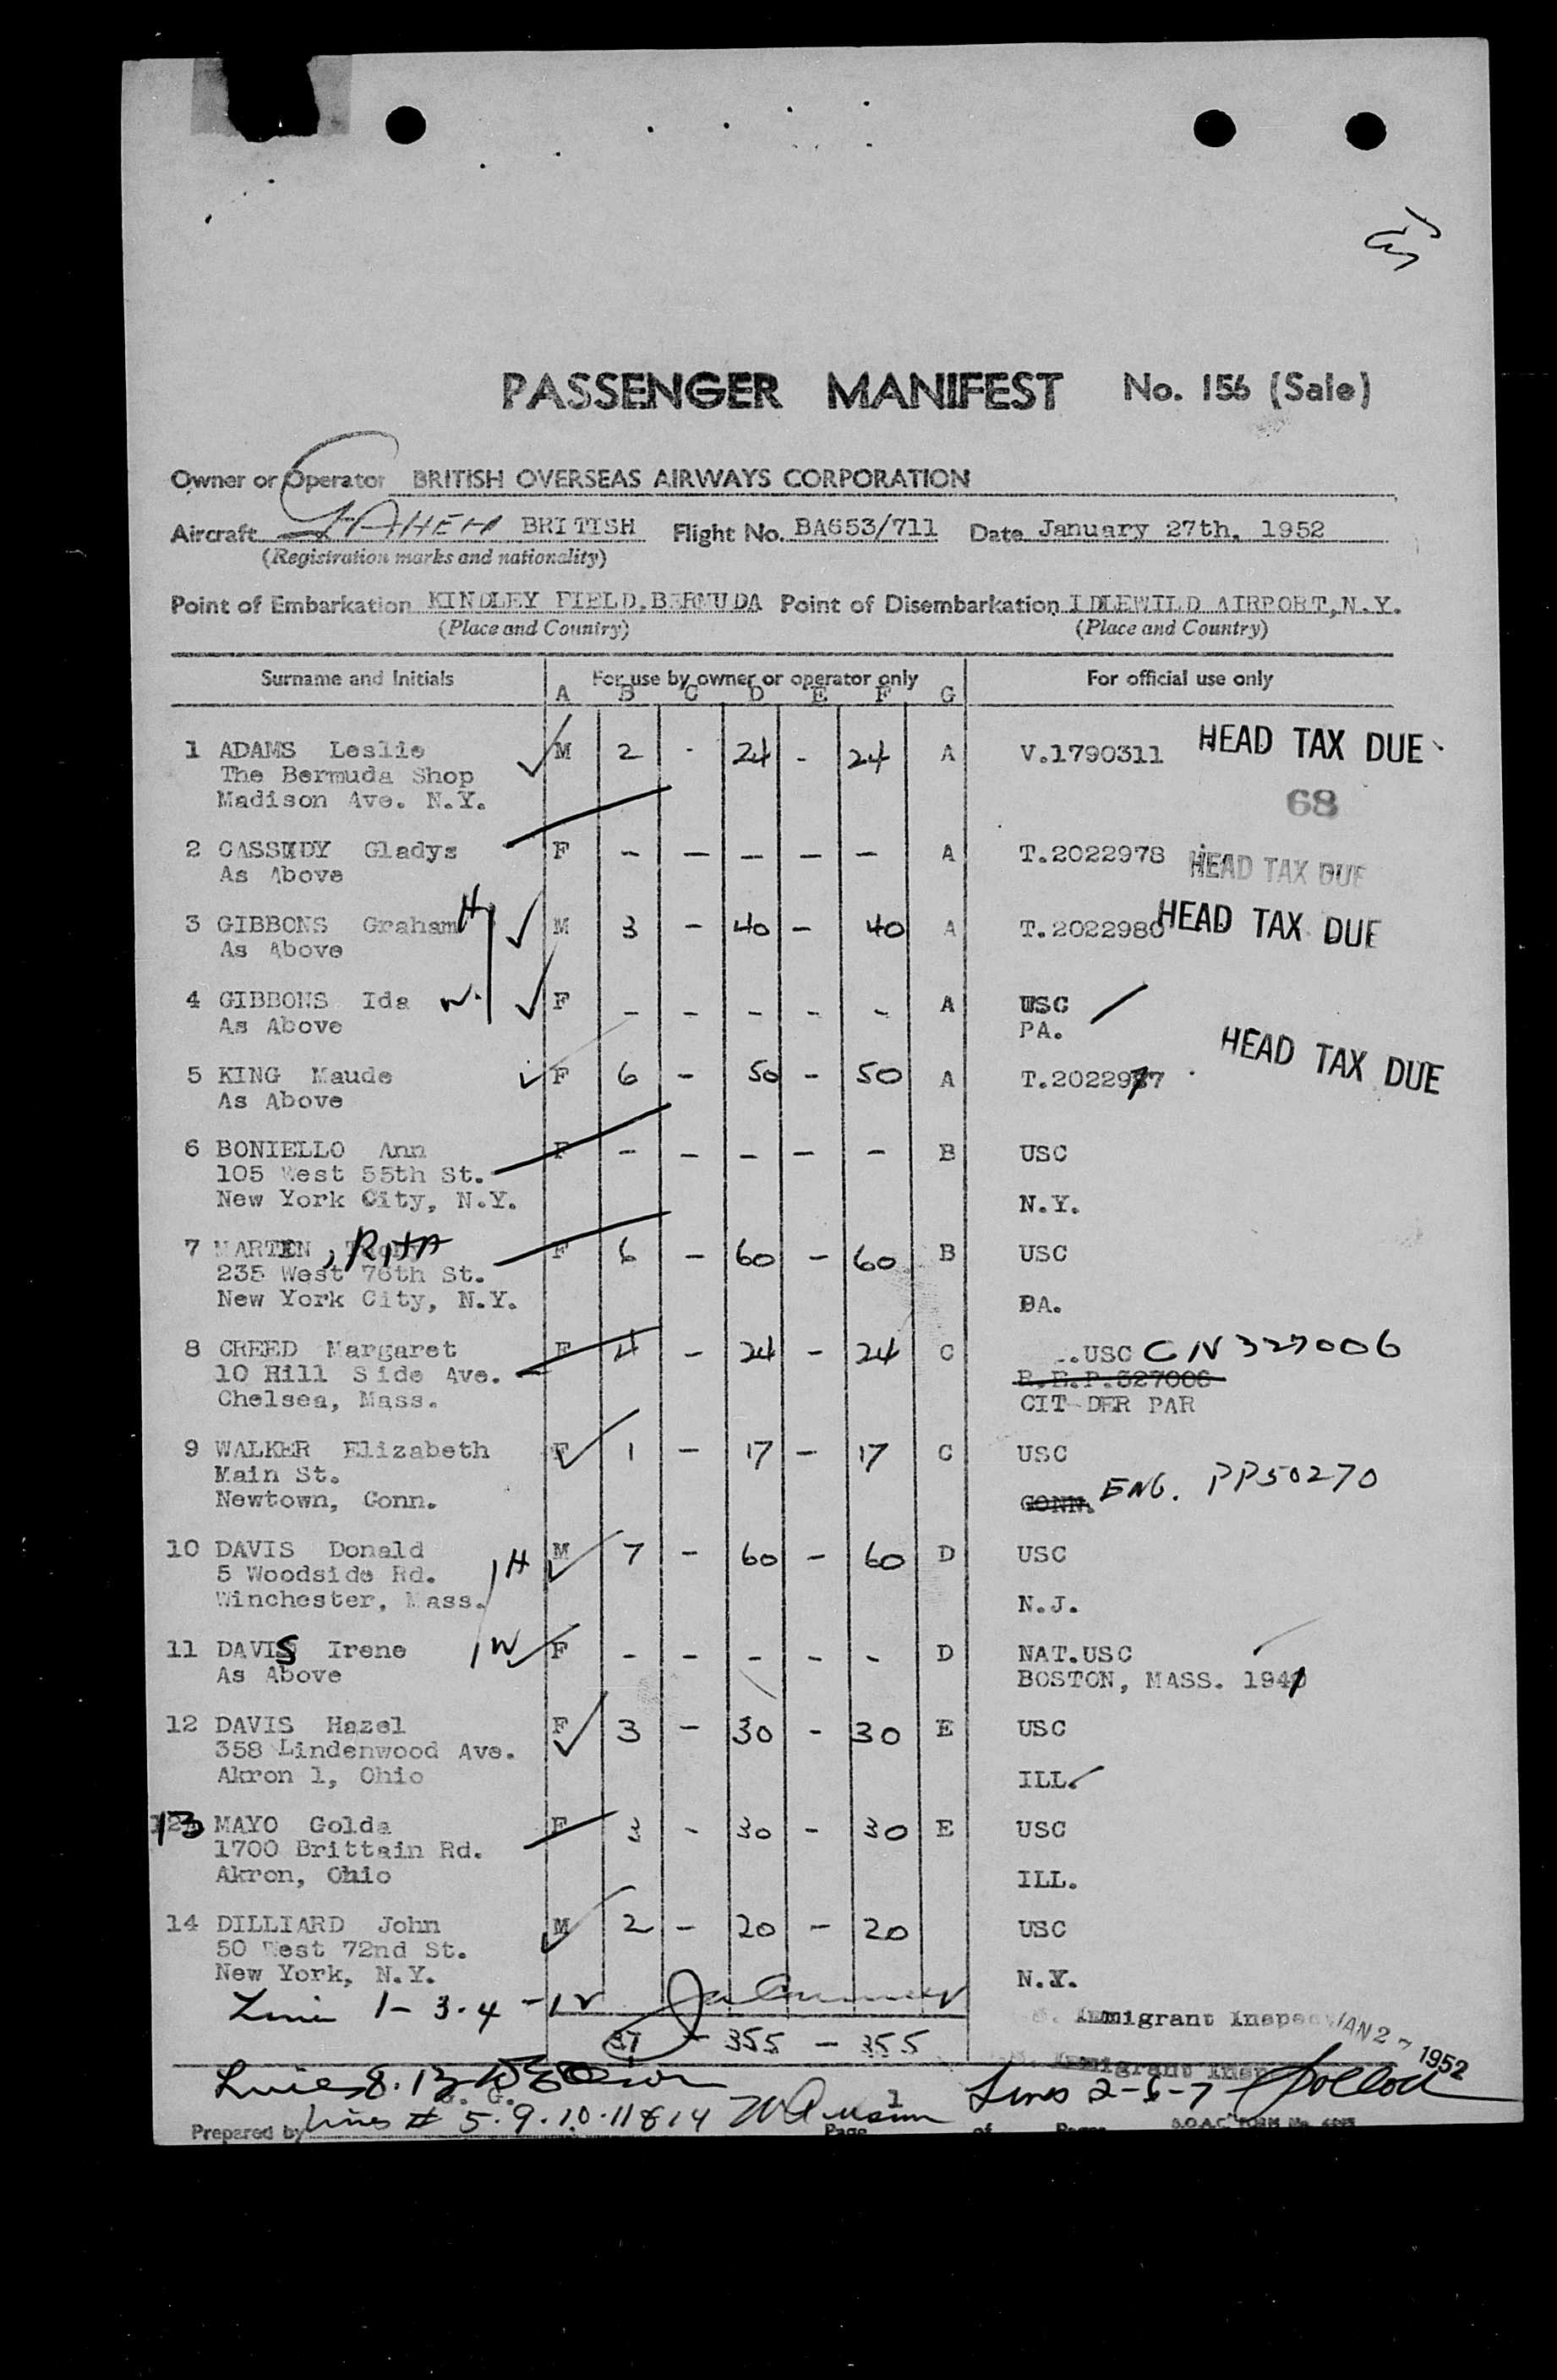 PASSENGER MANIFEST No. 156 (Sale)
Owner or Operator BRITISH OVERSEAS AIRWAYS CORPORATION
Aircraft GAHEM BRITISH Flight No. BA653/711 Date January 27th, 1952
(Registration marks and nationality)
Point of Embarkation KINDLEY FIELD, BERMUDA Point of Disembarkation IDLEWILD AIRPORT, N.Y.
(Place and Country) (Place and Country)
Surname and Initials For use by owner or operator only For official use only
A B C D E F G
1 ADAMS Leslie M 2 - 24 - 24 A V.1790311 HEAD TAX DUE
The Bermuda Shop
Madison Ave. N.Y. 68
2 CASSIDY Gladys F - - - - - A T.2022978 HEAD TAX DUE
As Above
3 GIBBONS Graham H M 3 - 40 - 40 A T.2022980 HEAD TAX DUE
As Above
4 GIBBONS Ida W. F - - - - - A USC
As Above PA.
5 KING Maude F 6 - 50 - 50 A T.2022977 HEAD TAX DUE
As Above
6 BONIELLO Ann F - - - - - B USC
105 West 55th St.
New York City, N.Y. N.Y.
7 MARTIN, RITA F 6 - 60 - 60 B USC
235 West 76th St.
New York City, N.Y. PA.
8 CREED Margaret F 4 - 24 - 24 C USC CN 327006
10 Hill Side Ave. R.E.P.327006
Chelsea, Mass. CIT DER PAR
9 WALKER Elizabeth F 1 - 17 - 17 C USC
Main St.
Newtown, Conn. CONN. ENG. PP50270
10 DAVIS Donald H M 7 - 60 - 60 D USC
5 Woodside Rd.
Winchester, Mass. N.J.
11 DAVIS Irene W F - - - - - D NAT.USC
As Above BOSTON, MASS. 1941
12 DAVIS Hazel F 3 - 30 - 30 E USC
358 Lindenwood Ave.
Akron 1, Ohio ILL.
13 MAYO Golda F 3 - 30 - 30 E USC
1700 Brittain Rd.
Akron, Ohio ILL.
14 DILLIARD John M 2 - 20 - 20 USC
50 West 72nd St.
New York, N.Y. N.Y.
Line 1-3-4-12
Immigrant Inspec JAN 27 1952
37 - 355 - 355
Immigrant Insp
Lines 8.13 Lines 2-6-7
Lines # 5.9.10.11 & 14
Prepared by Page 1 of Pages B.O.A.C. FORM No.